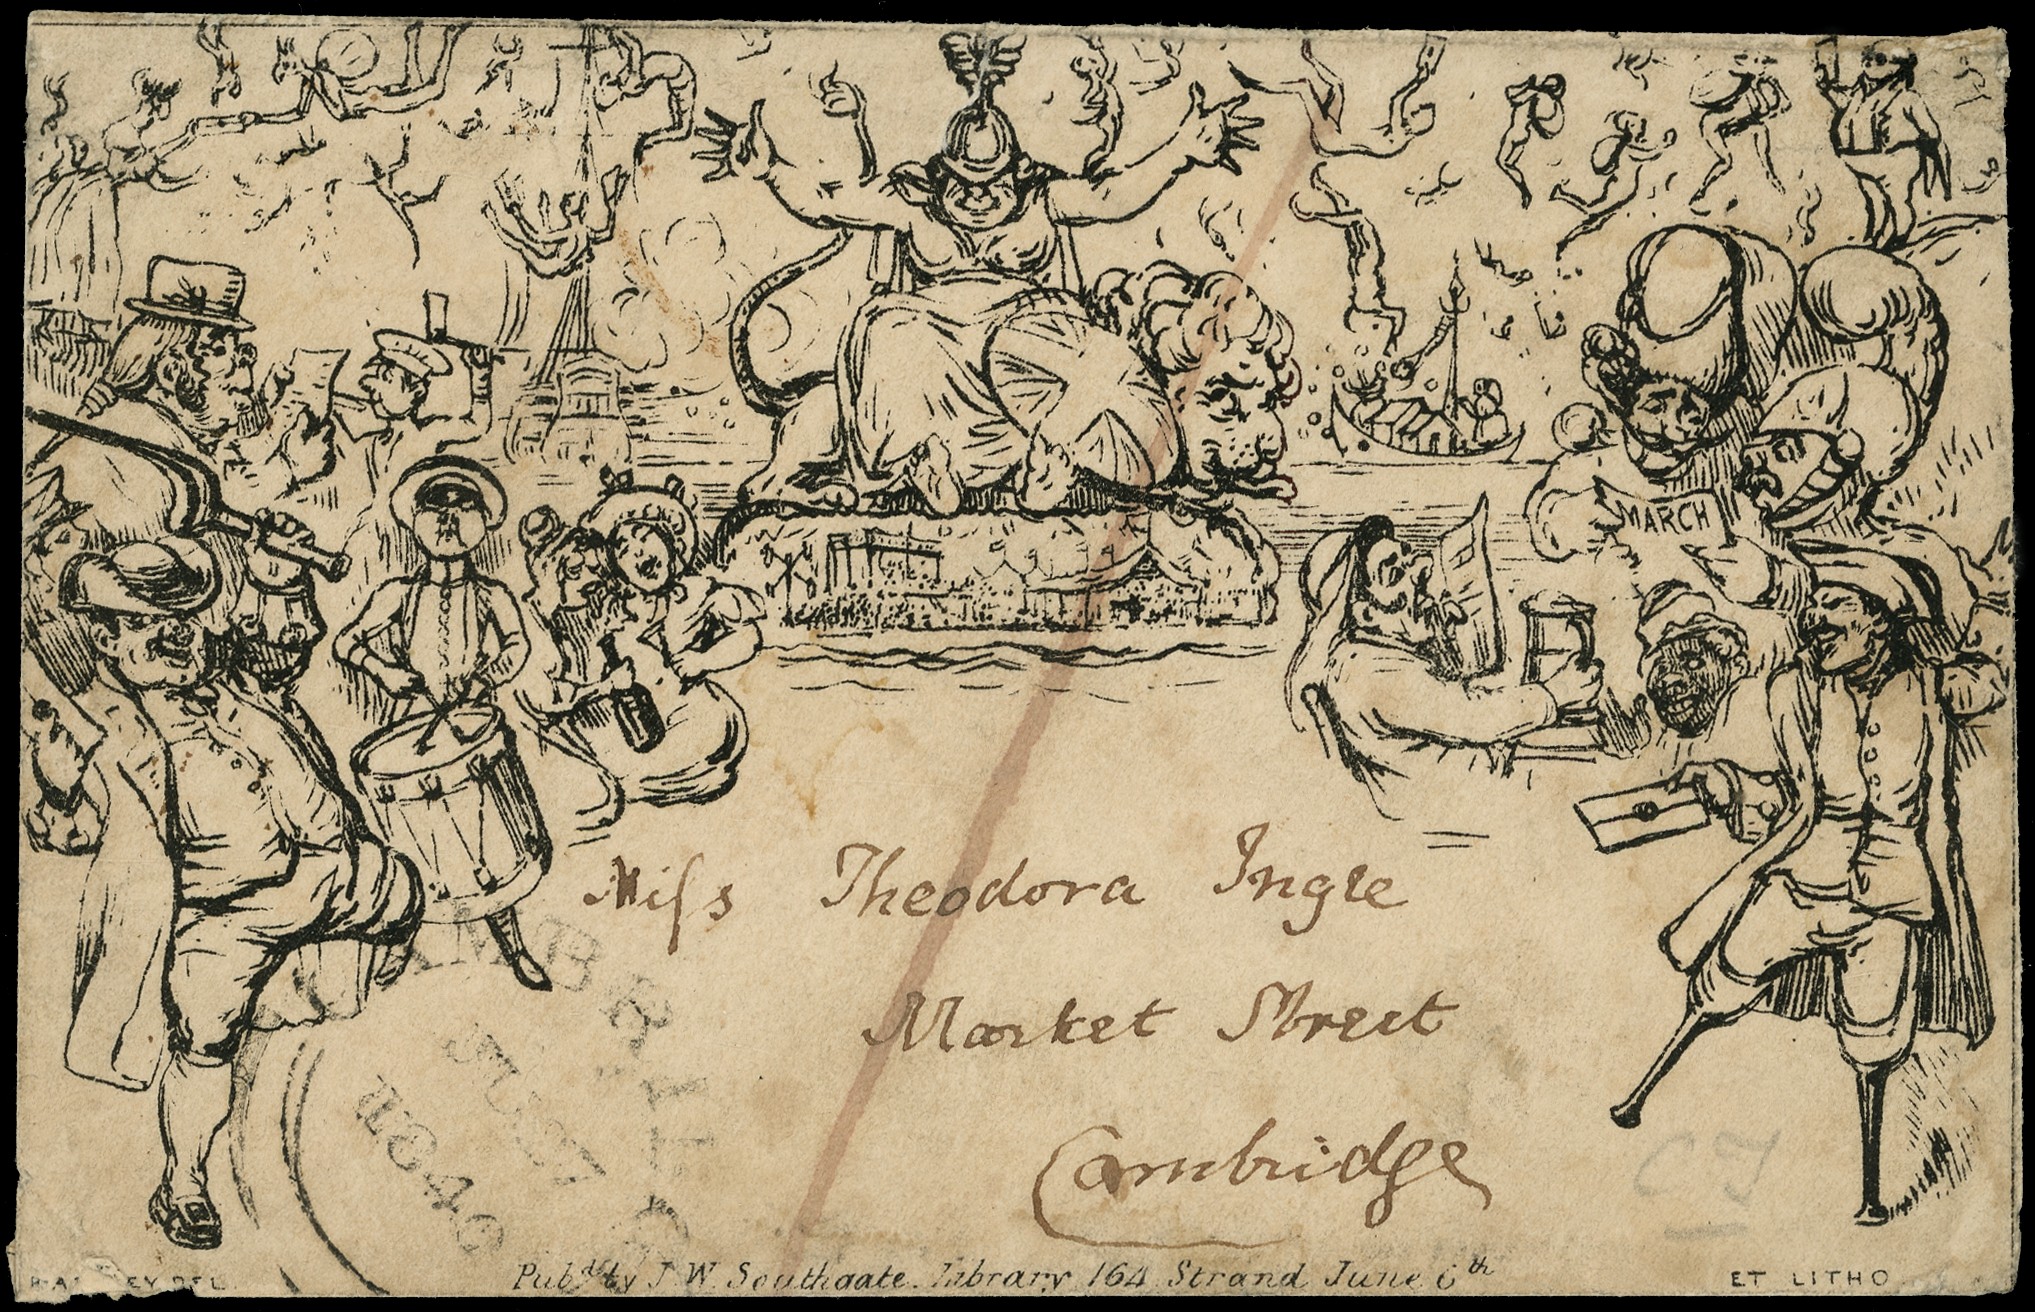 MARCH
Miſs Theodora Ingle
Market Street
Cambridge
CAMBRIDGE
1840
CJ
DEL.
Pubd. by J. W. Southgate. Library 164 Strand June 6th
ET LITHO